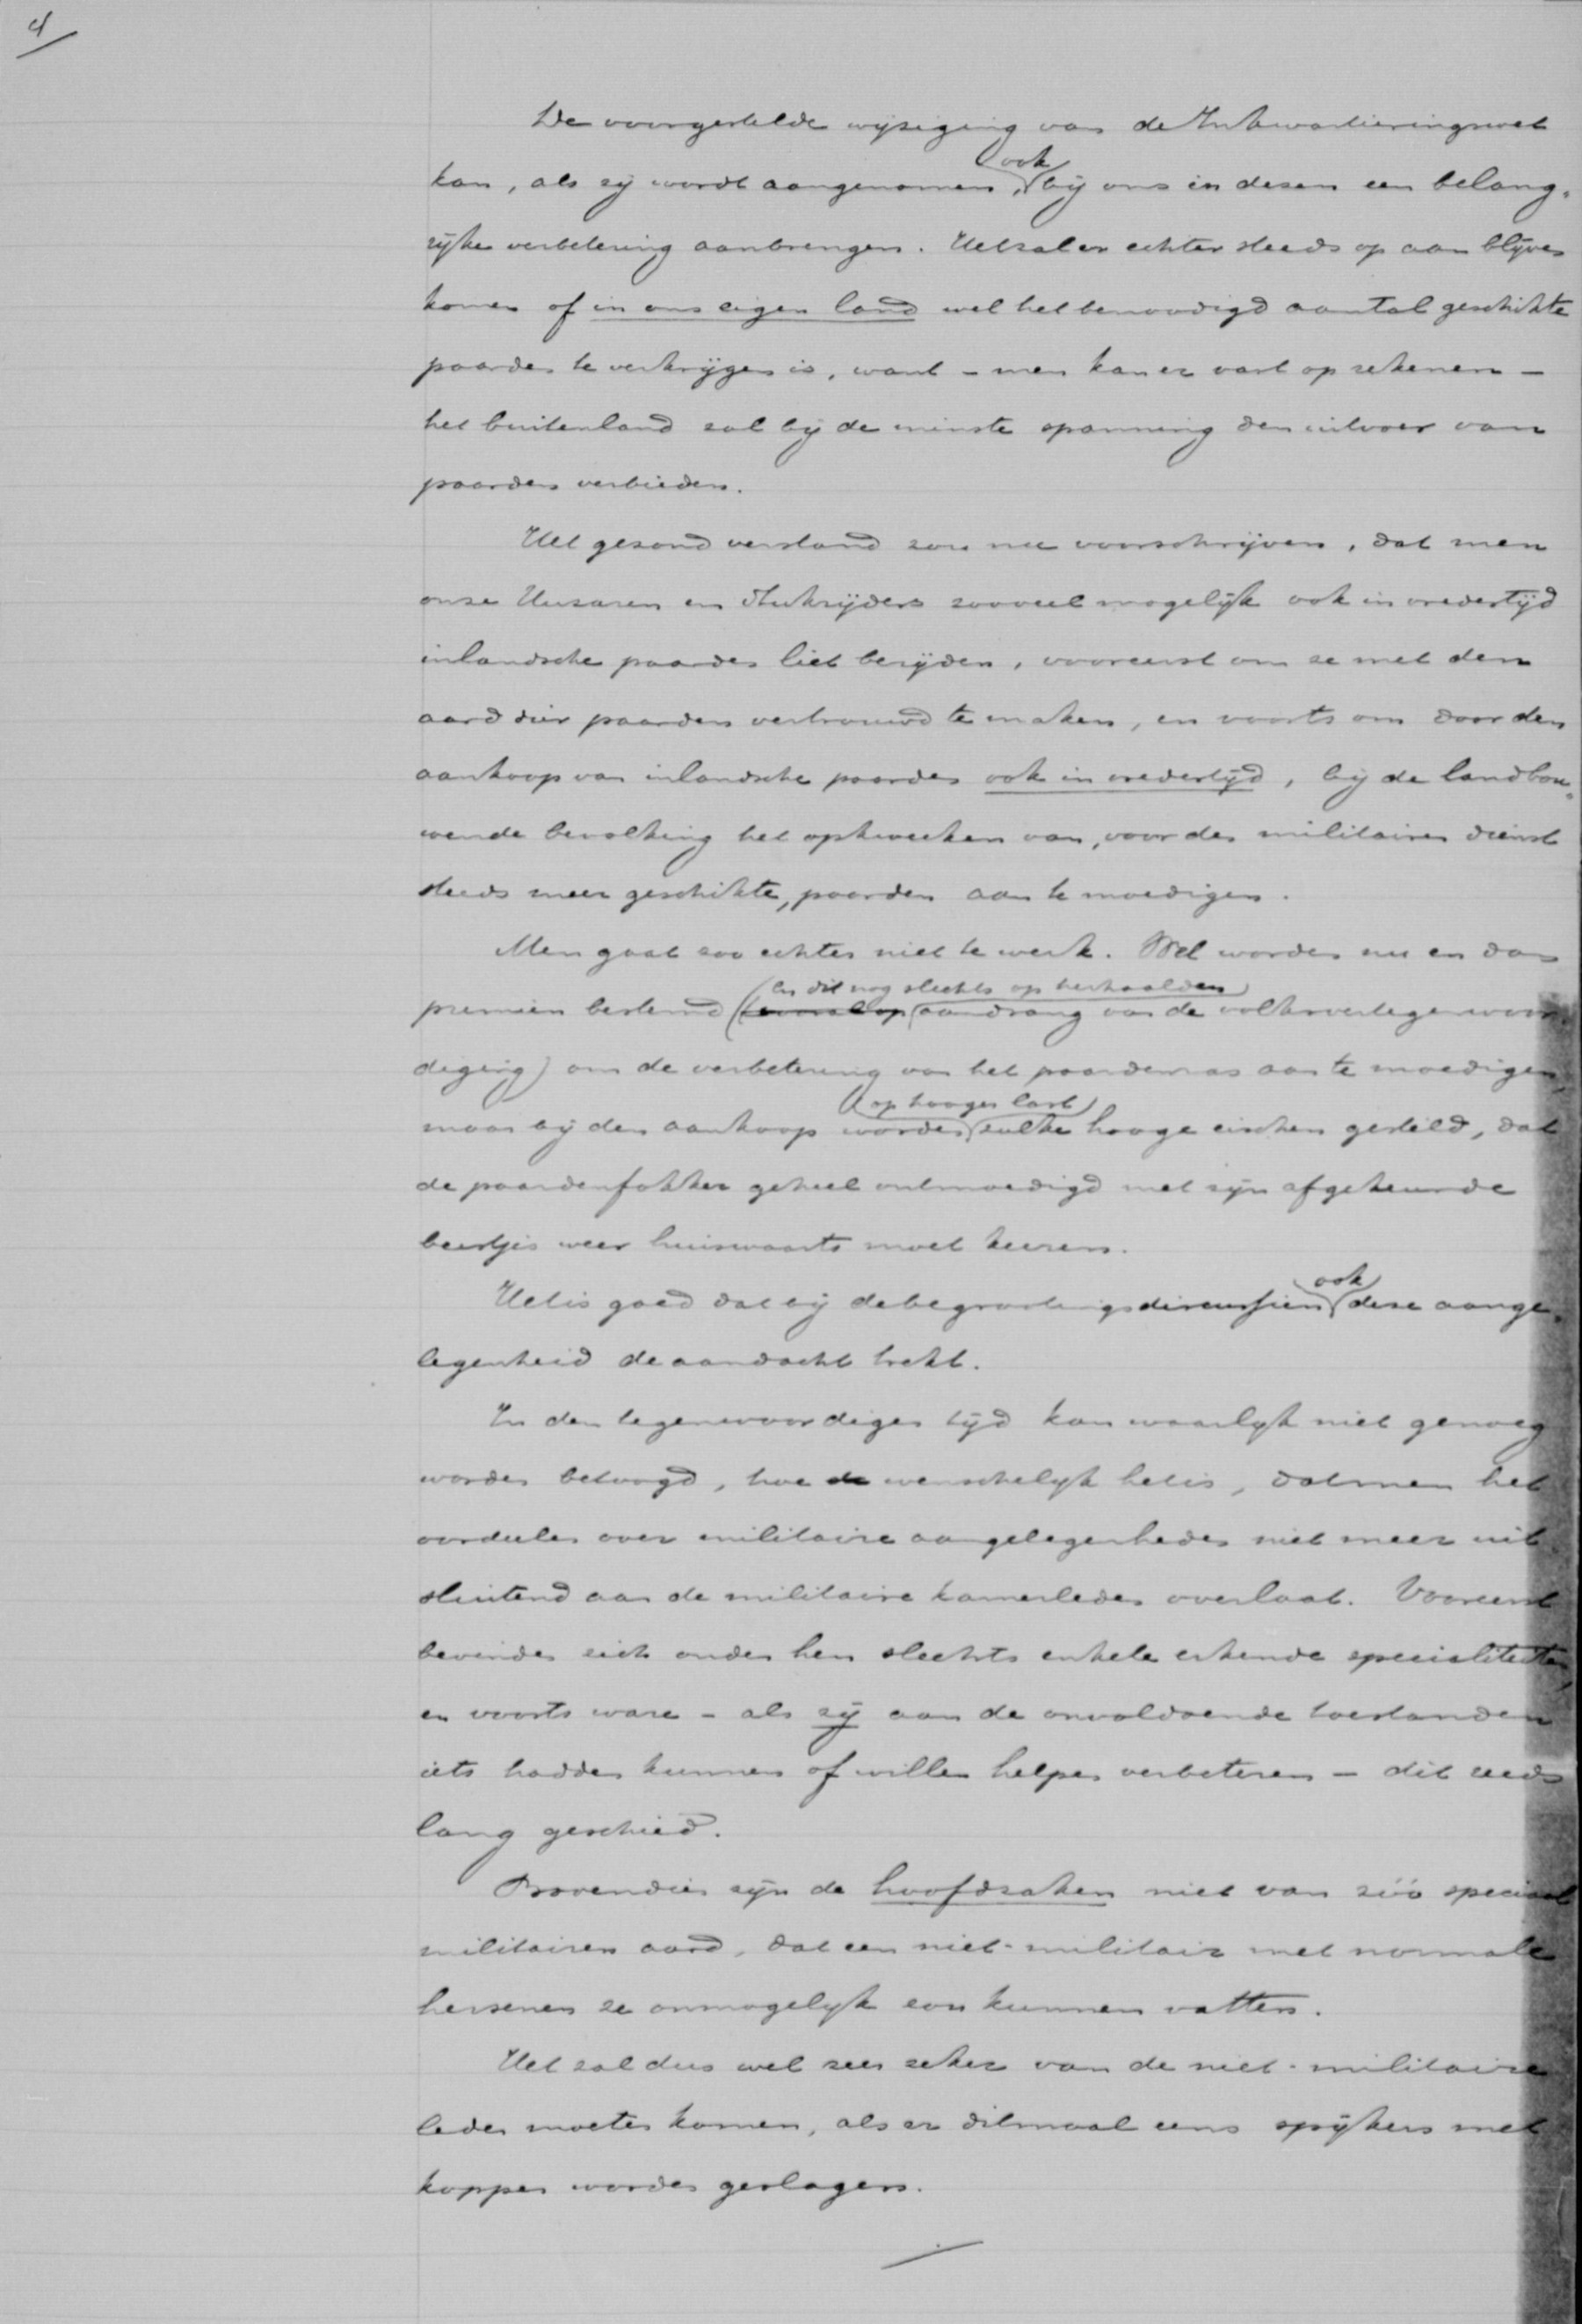 4/
De voorgestelde wijziging van de Inkwartieringswet
kan, als zij wordt aangenomen, ook bij ons in dezen een belang-
rijke verbetering aanbrengen. Het zal er echter steeds op aan blijven
komen of in ons eigen land wel het benoodigd aantal geschikte
paarden te verkrijgen is, want - men kan er vast op rekenen -
het buitenland zal bij de minste spanning den uitvoer van
paarden verbieden.
Het gezond verstand zou nu voorschrijven, dat men
onze Huzaren en Stukrijders zooveel mogelijk ook in vredestijd
inlandsche paarden liet berijden, vooreerst om ze met den
aard dier paarden vertrouwd te maken, en voorts om door den
aankoop van inlandsche paarden ook in vredestijd, bij de landbou-
wende bevolking het opkweeken van, voor den militairen dienst
steeds meer geschikte, paarden aan te moedigen.
Men gaat zoo echter niet te werk. Wel worden nu en dan
premiën bestemd (en dit nog slechts op herhaalden aandrang van de volksvertegenwoor-
diging) om de verbetering van het paardenras aan te moedigen,
maar bij den aankoop worden op hoogen last zulke hooge eischen gesteld, dat
de paardenfokker geheel ontmoedigd met zijn afgekeurde
beestjes weer huiswaarts moet keeren.
Het is goed dat bij de begrootingsdiscussiën ook deze aange-
legenheid de aandacht trekt.
In den tegenwoordigen tijd kan waarlijk niet genoeg
worden betoogd, hoe wenschelijk het is, dat men het
oordeelen over militaire aangelegenheden niet meer uit-
sluitend aan de militaire kamerleden overlaat. Vooreerst
bevinden zich onder hen slechts enkele erkende specialiteiten,
en voorts ware - als zij aan de onvoldoende toestanden
iets hadden kunnen of willen helpen verbeteren - dit reeds
lang geschied.
Bovendien zijn de hoofdzaken niet van zóó speciaal
militairen aard, dat een niet-militair met normale
hersenen ze onmogelijk zou kunnen vatten.
Het zal dus wel zeer zeker van de niet-militaire
leden moeten komen, als er ditmaal eens spijkers met
koppen worden geslagen.